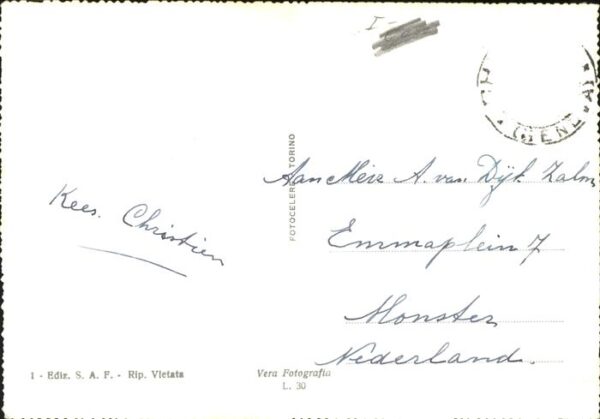 I -
GENE
Kees. Christien
FOTOCELERE TORINO
Aan Mevr A. van Dijk Zalm
Emmaplein 7
Monster
Nederland.
1 - Ediz. S. A. F. - Rip. Vietata
Vera Fotografia
L. 30